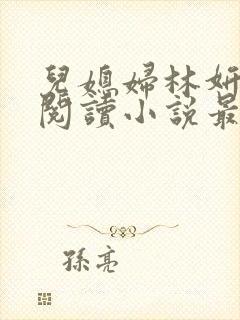 兒媳婦林妍
閱讀小說最
孫亮